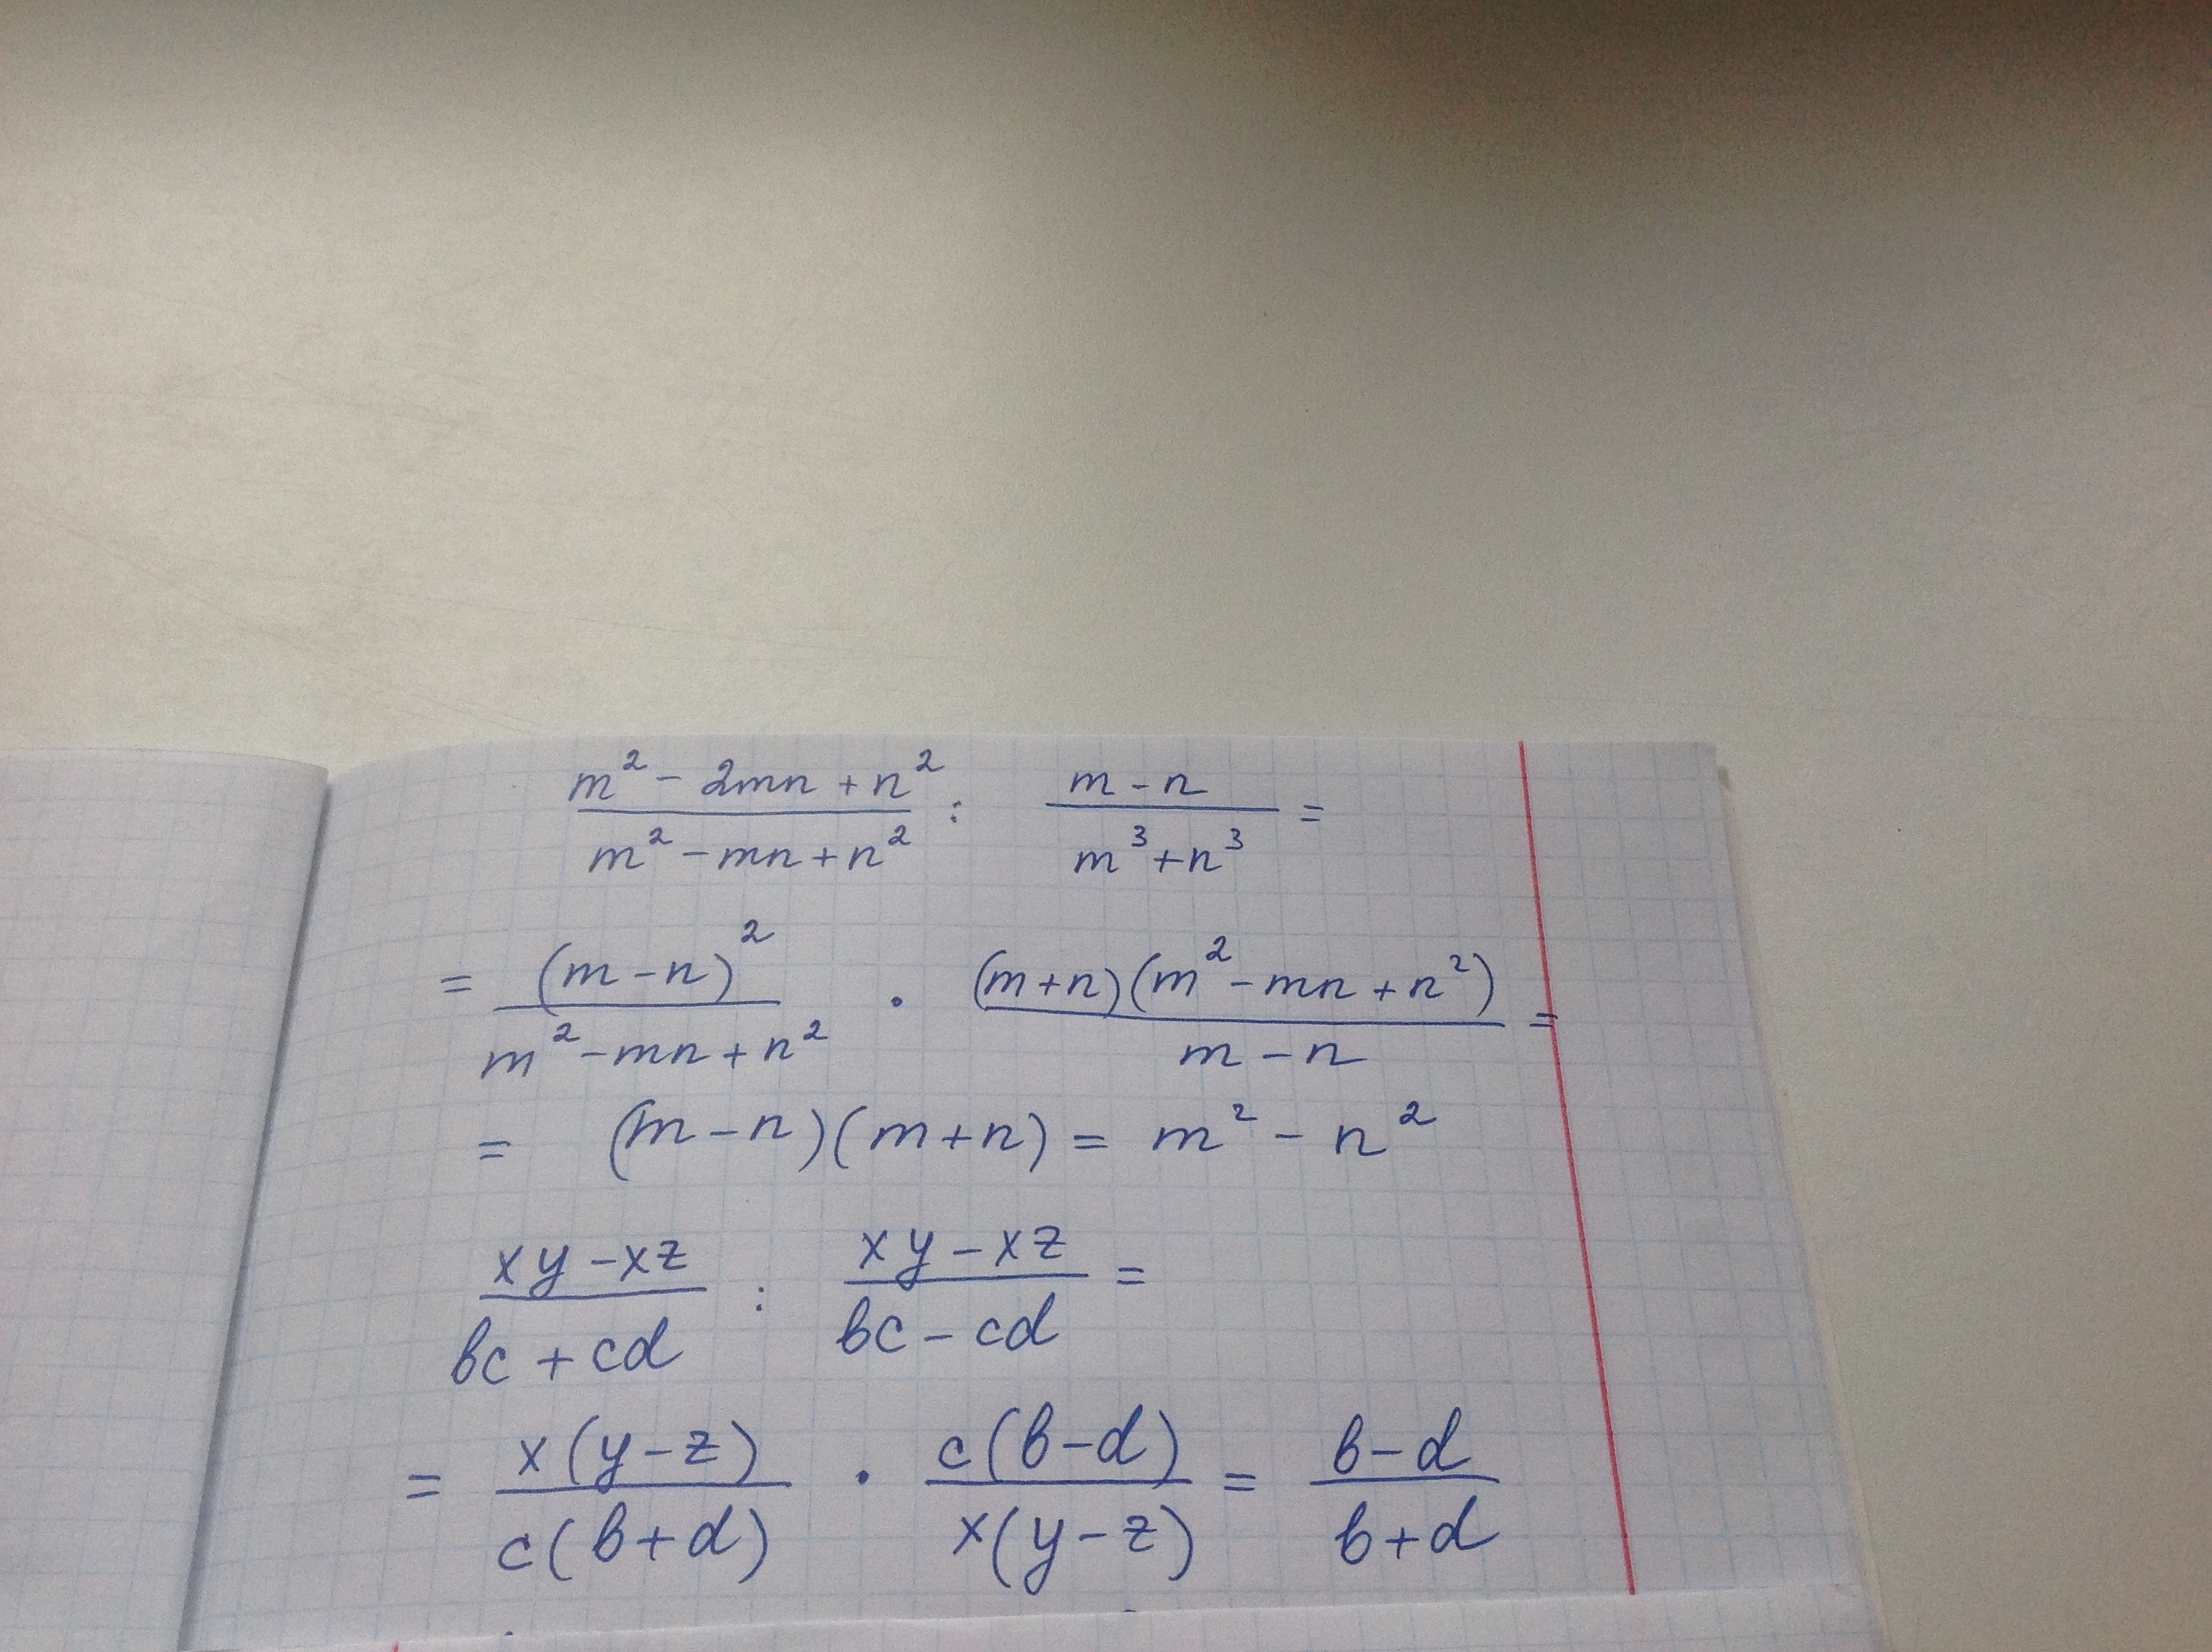 (m² - 2mn + n²)/(m² - mn + n²) : (m - n)/(m³ + n³) =
= (m - n)²/(m² - mn + n²) · (m + n)(m² - mn + n²)/(m - n) =
= (m - n)(m + n) = m² - n²
(xy - xz)/(bc + cd) : (xy - xz)/(bc - cd) =
= x(y - z)/c(b + d) · c(b - d)/x(y - z) = (b - d)/(b + d)